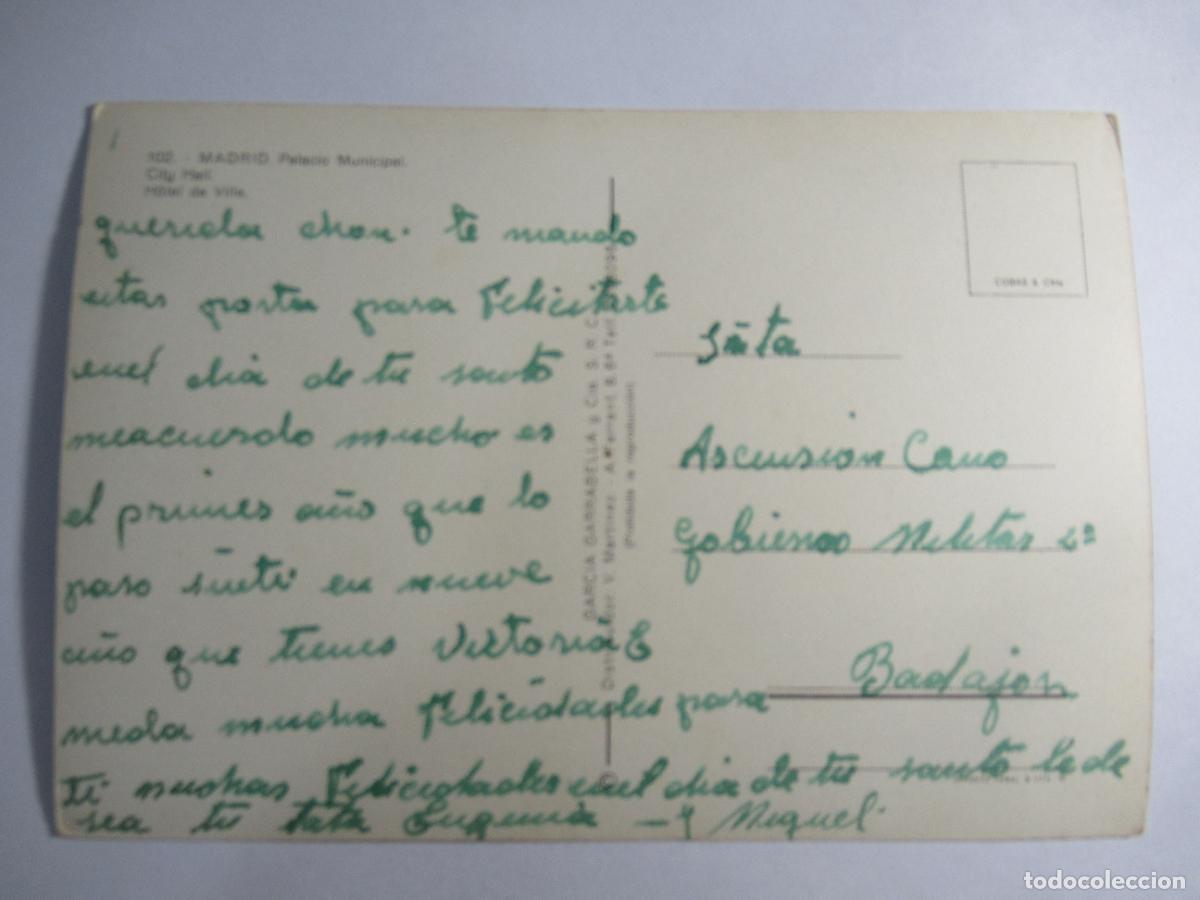 102. - MADRID. Palacio Municipal.
City Hall.
Hôtel de Ville.
querida chon. te mando
estas posta para Felicitarte
enel dia de tu santo
meacuerdo mucho es
el primer año que lo
paso sinti en nueve
año que tienes Victoria E
meda mucha Felicidades para
ti muchas Felicidades enel dia de tu santo lo de
sea tu tata Eugenia - y Miguel.
GARCIA GARRABELLA y Cia. S. R. C.
V. Martinez - A. Ferrant, 8, 6ª Telf.
(Prohibida la reproducción)
Sñta
Ascension Cano
Gobierno Militar 2º
Badajoz
todocoleccion